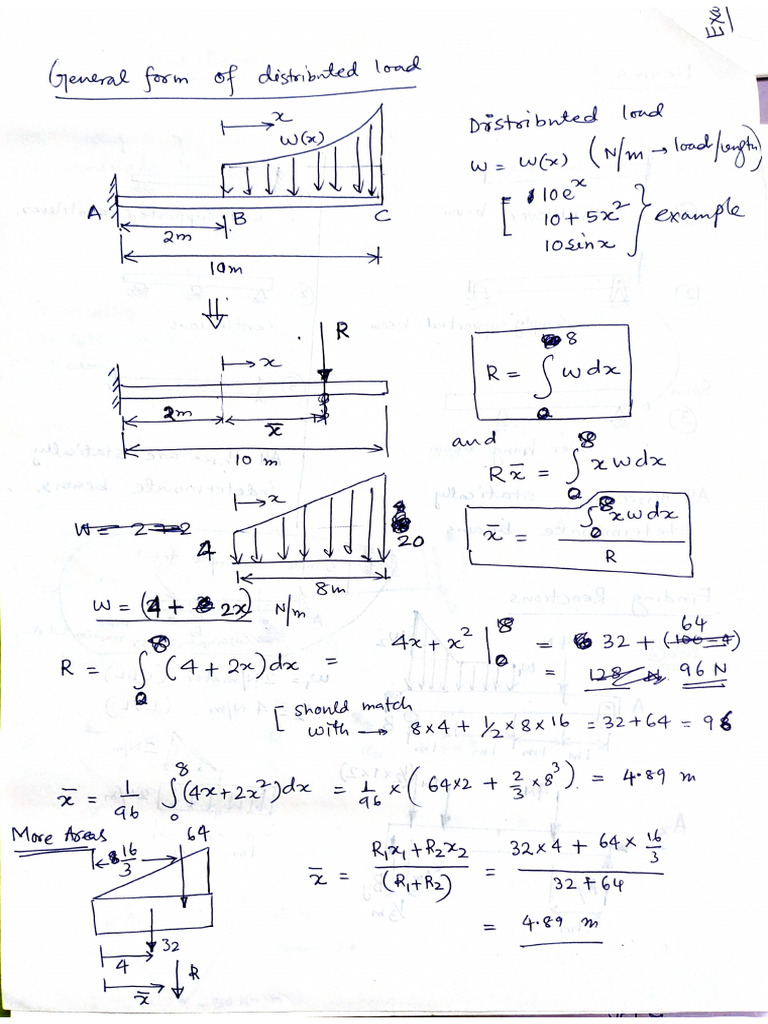 Exa
General form of distributed load
x
w(x)
A
B
C
2m
10m
Distributed load
w = w(x) (N/m → load/length)
[ 10e^x
10 + 5x^2
10 sin x } example
R
x
2m
x̄
10 m
R = ∫_0^8 w dx
and
R x̄ = ∫_0^8 x w dx
x̄ = ∫_0^8 x w dx / R
x
w = 2 + 2
4
20
8m
w = (4 + 2x) N/m
R = ∫_0^8 (4 + 2x) dx = 4x + x^2 |_0^8 = 32 + (100 - 4) 64
= 128 N 96 N
[ should match
with → 8×4 + 1/2 × 8 × 16 = 32 + 64 = 96
x̄ = 1/96 ∫_0^8 (4x + 2x^2) dx = 1/96 × (64×2 + 2/3 × 8^3) = 4.89 m
More Areas
16/3
64
32
4
R
x̄
x̄ = (R1x1 + R2x2) / (R1 + R2) = (32 × 4 + 64 × 16/3) / (32 + 64)
= 4.89 m